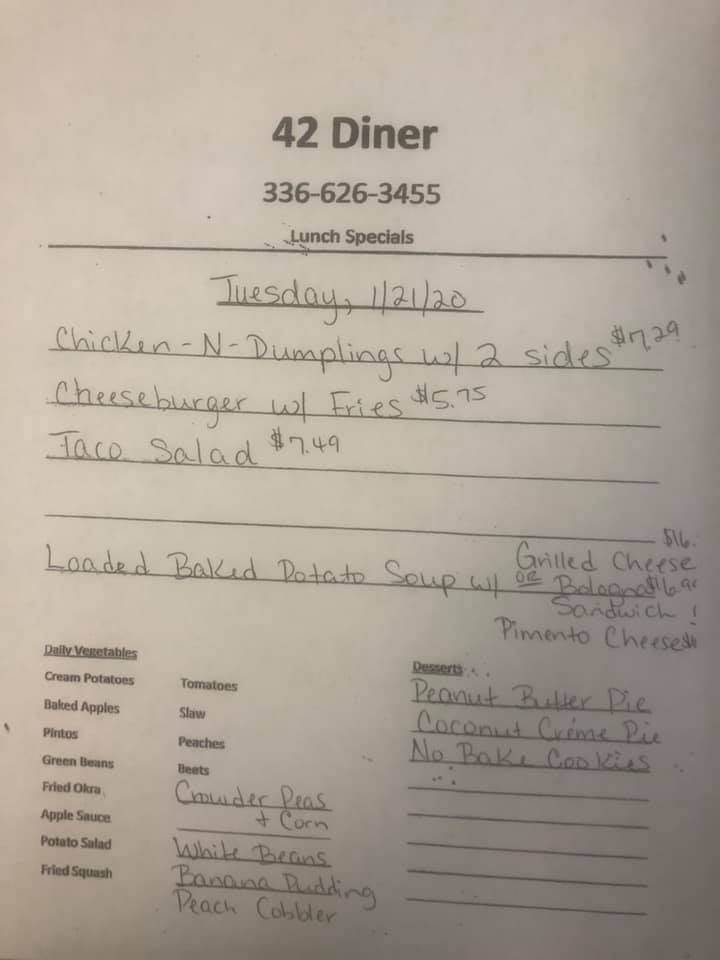 42 Diner
336-626-3455
Lunch Specials
Tuesday, 1/21/20
Chicken-N-Dumplings w/ 2 sides $7.29
Cheeseburger w/ Fries $5.75
Taco Salad $7.49
Loaded Baked Potato Soup w/ Grilled Cheese
or Bologna
Sandwich
Pimento Cheese
Daily Vegetables
Cream Potatoes
Baked Apples
Pintos
Green Beans
Fried Okra
Apple Sauce
Potato Salad
Fried Squash
Tomatoes
Slaw
Peaches
Beets
Crowder Peas
+ Corn
White Beans
Banana Pudding
Peach Cobbler
Desserts
Peanut Butter Pie
Coconut Créme Pie
No Bake Cookies